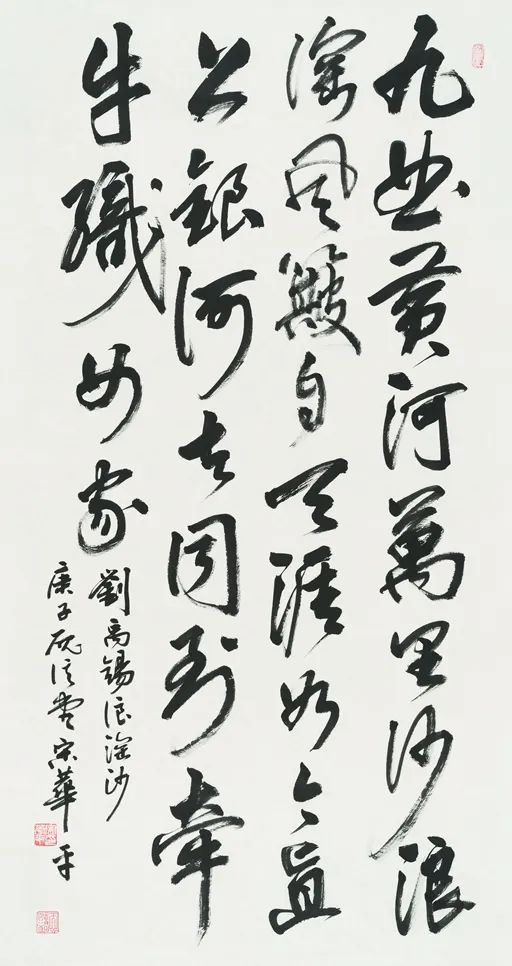 九曲黃河萬里沙浪
淘風簸自天涯如今直
上銀河去同到牽
牛織女家
劉禹錫浪淘沙
庚子宋華平